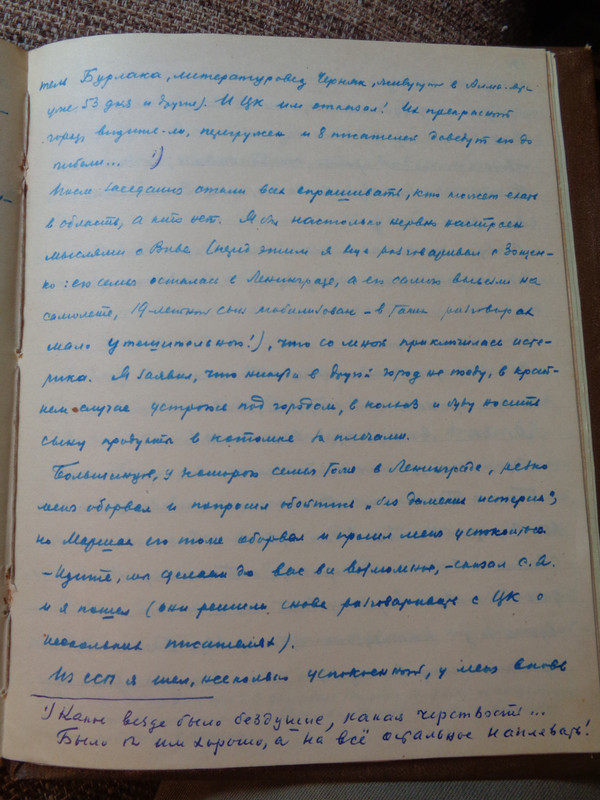 тель Бурлака, литературовед Черняк, живущий в Алма-Ата
уже 53 дня и другие). И ЦК им отказал! Их прекрасный
город видите-ли, перегружен и 8 писателей доведут его до
гибели... ¹)
После заседания стали всех спрашивать, кто может ехать
в область, а кто нет. Я был настолько нервно настроен
мыслями о Виве (перед этим я ещё разговаривал с Зощен-
ко: его семья осталась в Ленинграде, а его самого вывезли на
самолете, 19-летний сын мобилизован - в таких разговорах
мало утешительного!), что со мной приключилась исте-
рика. Я заявил, что никуда в другой город не поеду, в край-
нем случае устроюсь под городом, в колхоз и буду носить
сыну продукты в котомке за плечами.
Большинцов, у которого семья тоже в Ленинграде, резко
меня оборвал и попросил обойтись „без дамских истерик",
но Маршак его тоже оборвал и просил меня успокоиться.
- Идите, мы сделаем для вас все возможное, - сказал С.Я.
и я пошел (они решили снова разговаривать с ЦК о
нескольких писателях).
Из ССП я шел, несколько успокоенный, у меня вновь
¹) Какое везде было бездушие, какая черствость...
Было б им хорошо, а на всё остальное наплевать!